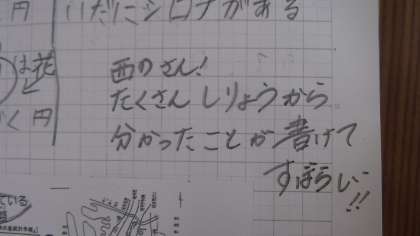 円
いだにシロナがある
は花
く円
西のさん!
たくさんしりょうから
分かったことが書けて
すばらしい!!
ている